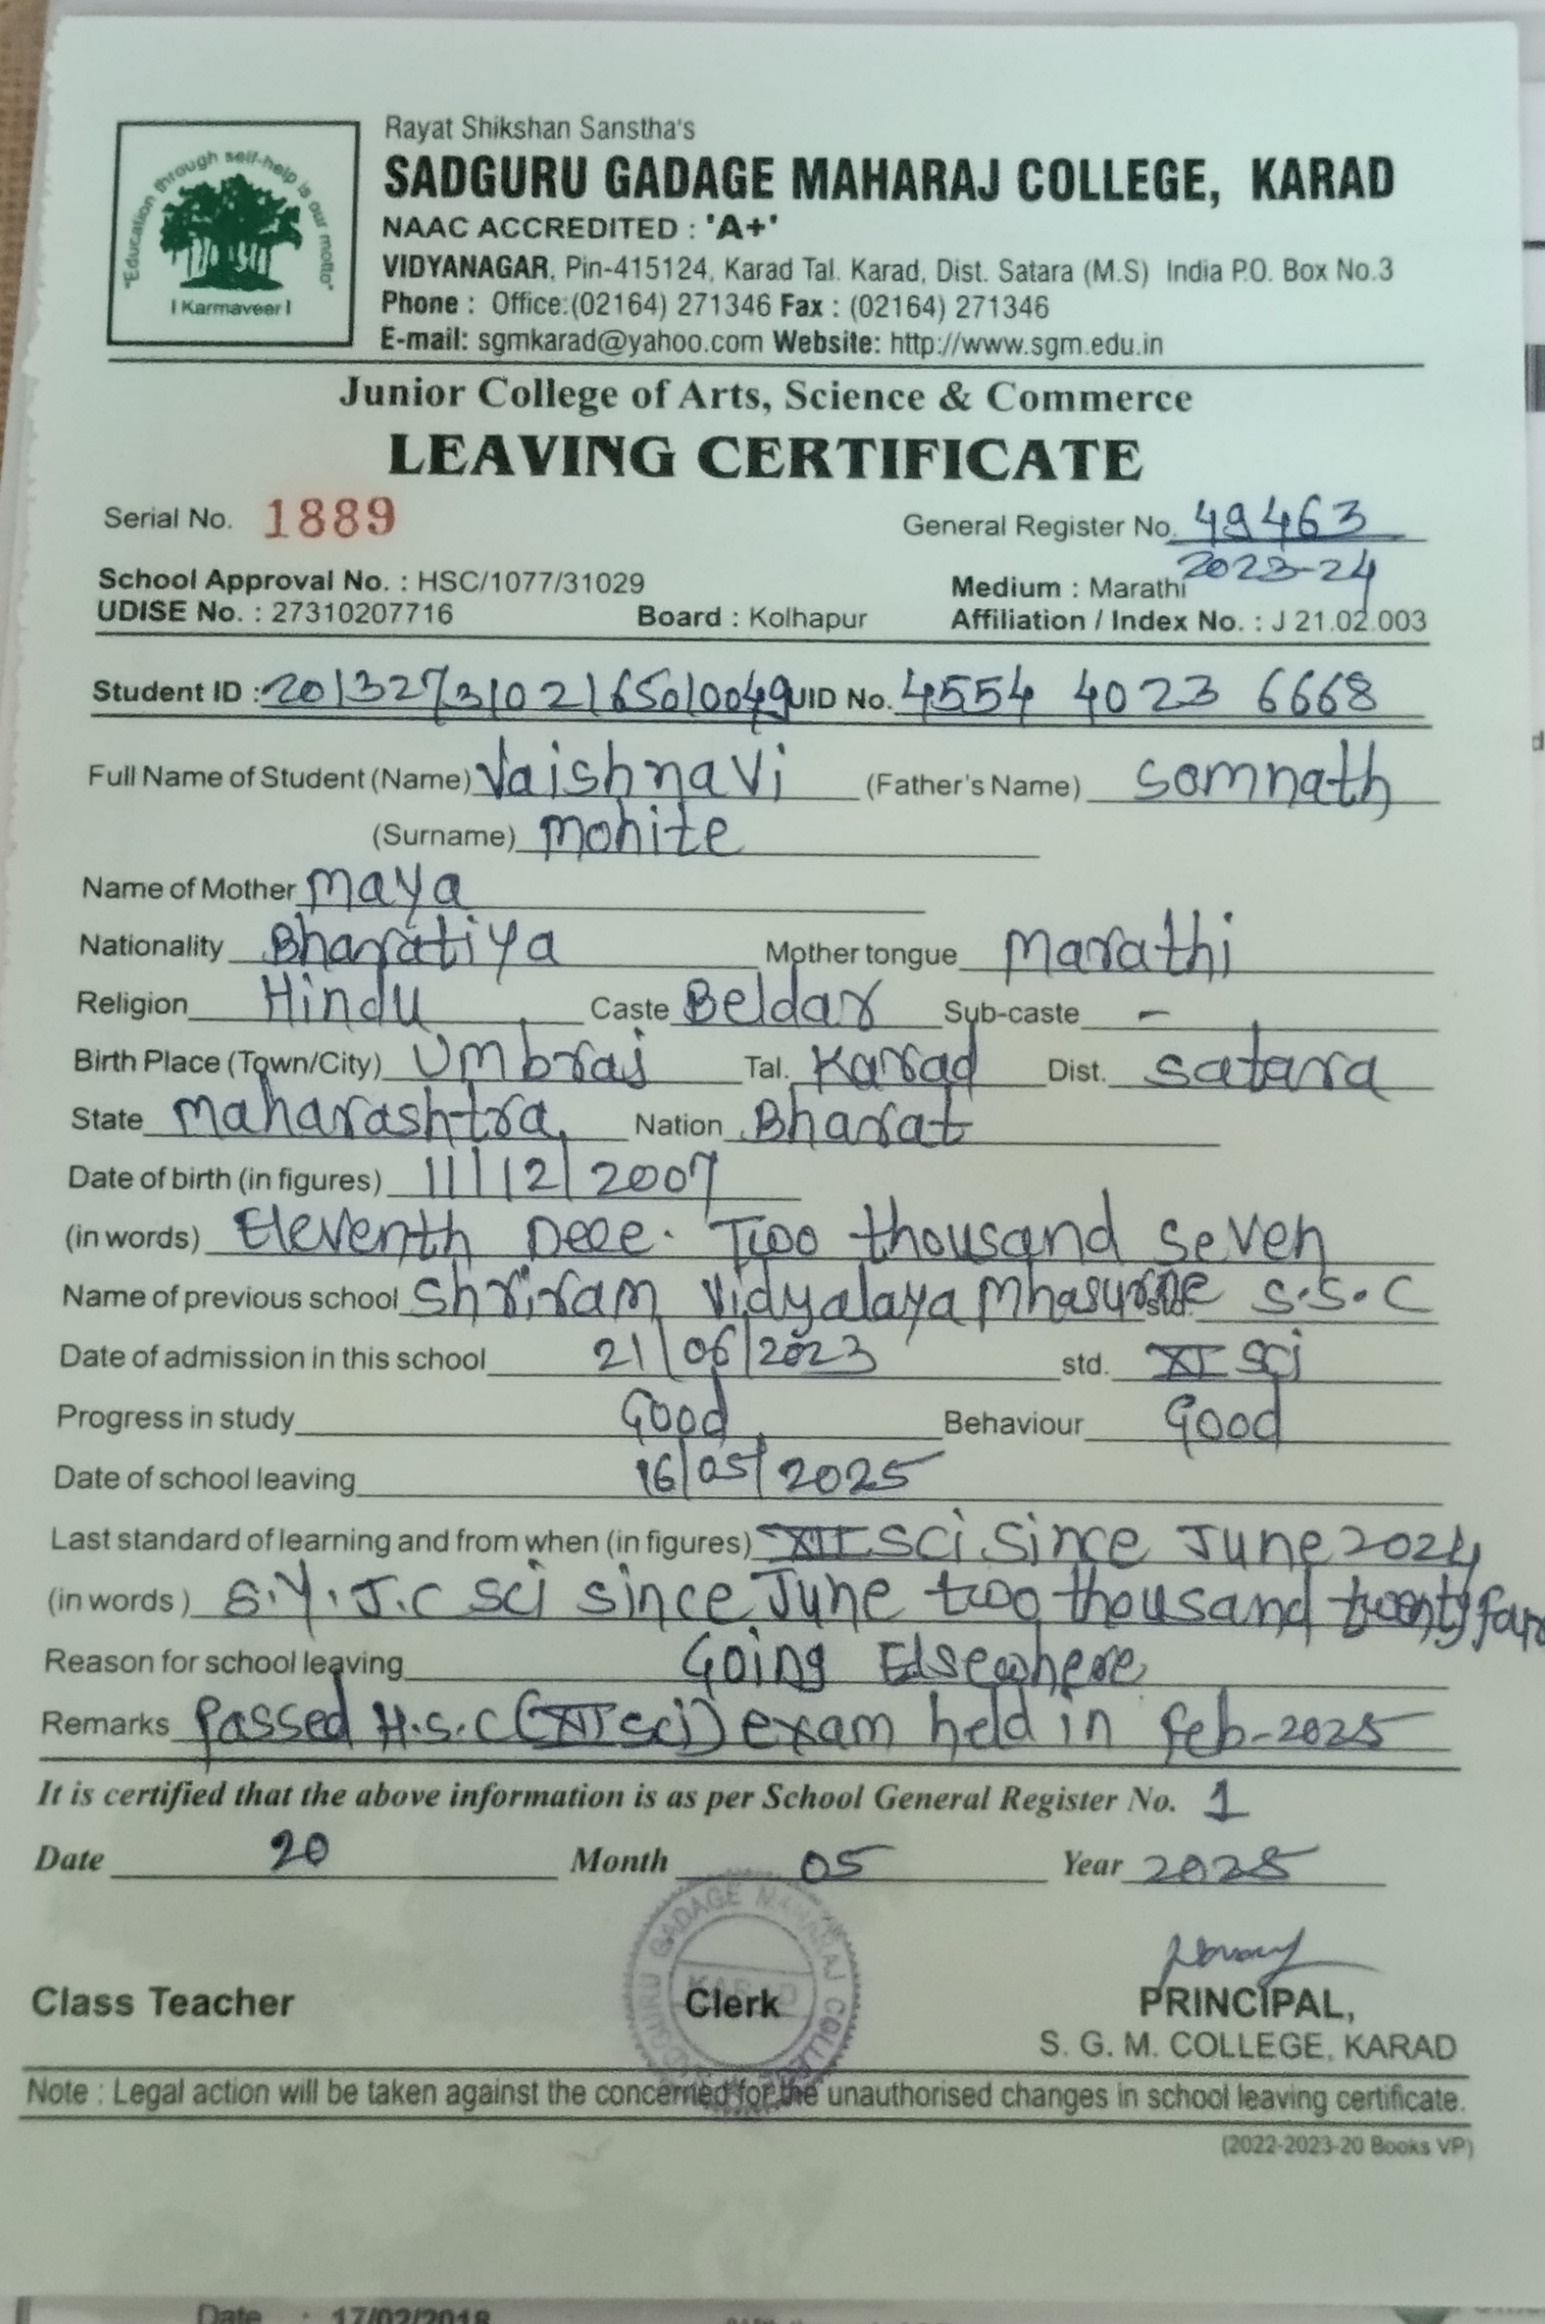 Rayat Shikshan Sanstha's
SADGURU GADAGE MAHARAJ COLLEGE, KARAD
NAAC ACCREDITED : 'A+'
VIDYANAGAR, Pin-415124, Karad Tal. Karad, Dist. Satara (M.S) India P.O. Box No.3
Phone : Office:(02164) 271346 Fax : (02164) 271346
E-mail: sgmkarad@yahoo.com Website: http://www.sgm.edu.in
"Education through self-help is our motto"
I Karmaveer I
Junior College of Arts, Science & Commerce
LEAVING CERTIFICATE
Serial No. 1889 General Register No. 49463
2023-24
School Approval No. : HSC/1077/31029 Medium : Marathi
UDISE No. : 27310207716 Board : Kolhapur Affiliation / Index No. : J 21.02.003
Student ID : 2013273102165010049 UID No. 4554 4023 6668
Full Name of Student (Name) Vaishnavi (Father's Name) Somnath
(Surname) Mohite
Name of Mother Maya
Nationality Bharatiya Mother tongue Marathi
Religion Hindu Caste Beldar Sub-caste –
Birth Place (Town/City) Umbraj Tal. Karad Dist. Satara
State Maharashtra Nation Bharat
Date of birth (in figures) 11/12/2007
(in words) Eleventh Dece. Two thousand seven
Name of previous school Shriram Vidyalaya Mhasurne S.S.C
Date of admission in this school 21/06/2023 std. XI Sci
Progress in study Good Behaviour Good
Date of school leaving 16/05/2025
Last standard of learning and from when (in figures) XII Sci Since June 2024
(in words ) S.Y.J.C Sci since June two thousand twenty four
Reason for school leaving Going Elsewhere
Remarks Passed H.S.C (XII Sci) exam held in Feb-2025
It is certified that the above information is as per School General Register No. 1
Date 20 Month 05 Year 2025
SADGURU GADAGE MAHARAJ COLLEGE
KARAD
Class Teacher Clerk PRINCIPAL,
S. G. M. COLLEGE, KARAD
Note : Legal action will be taken against the concerned for the unauthorised changes in school leaving certificate.
(2022-2023-20 Books VP)
Date : 17/02/2018